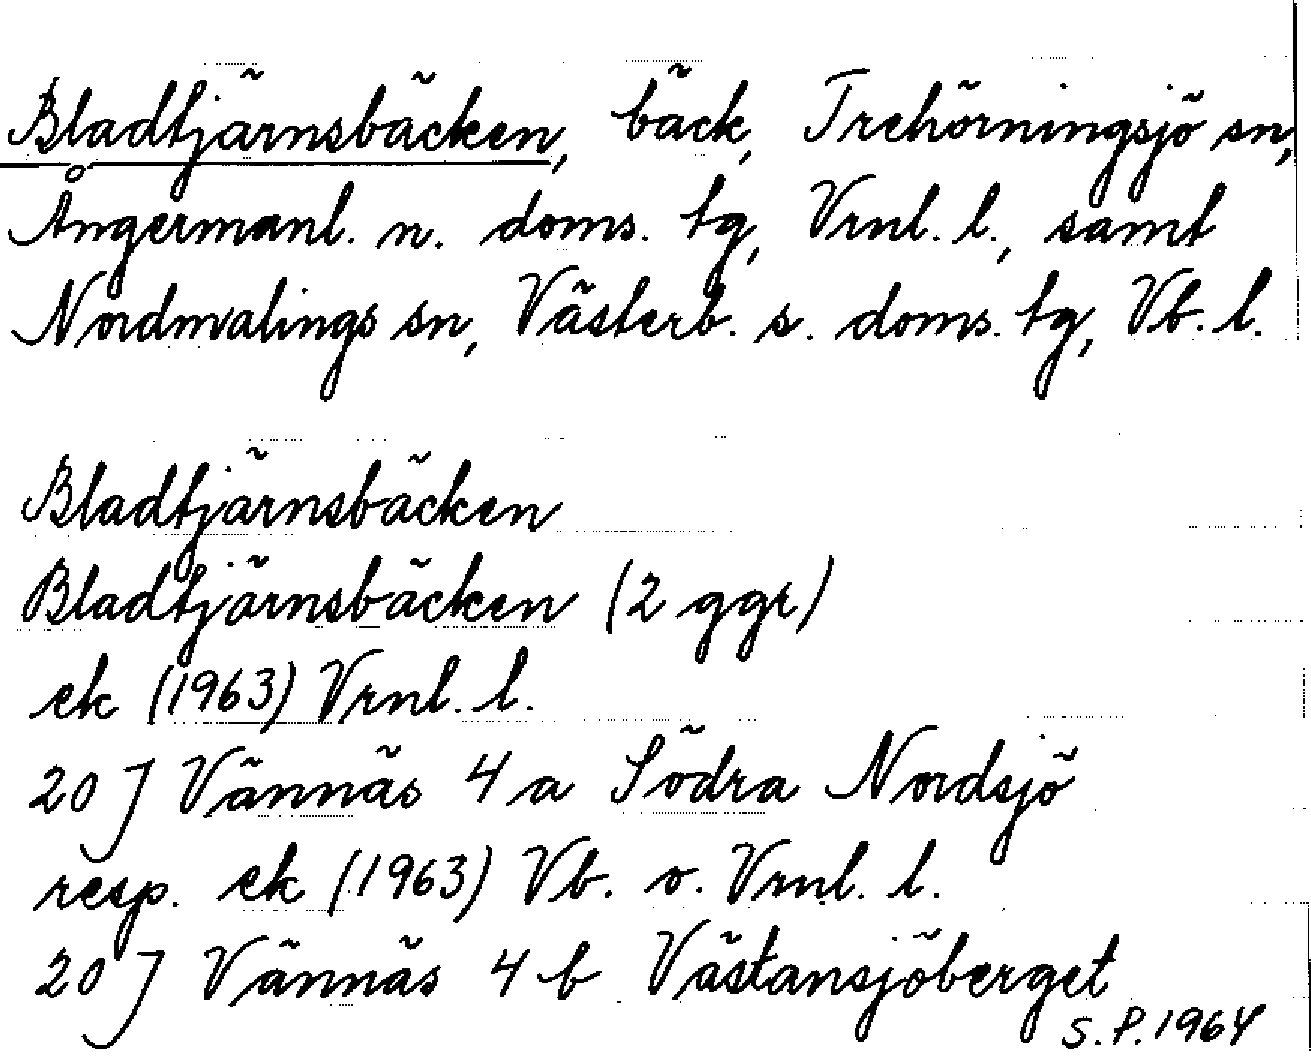 Bladtjärnsbäcken, bäck, Trehörningsjö sn,
Ångermanl. n. doms. tg, Vrnl. l., samt
Nordmalings sn, Västerb. s. doms. tg, Vb. l.
Bladtjärnsbäcken
Bladtjärnsbäcken (2 ggr)
ek (1963) Vrnl. l.
20 J Vännäs 4 a Södra Nordsjö
resp. ek (1963) Vb. o. Vrnl. l.
20 J Vännäs 4 b Västansjöberget
S.P. 1964